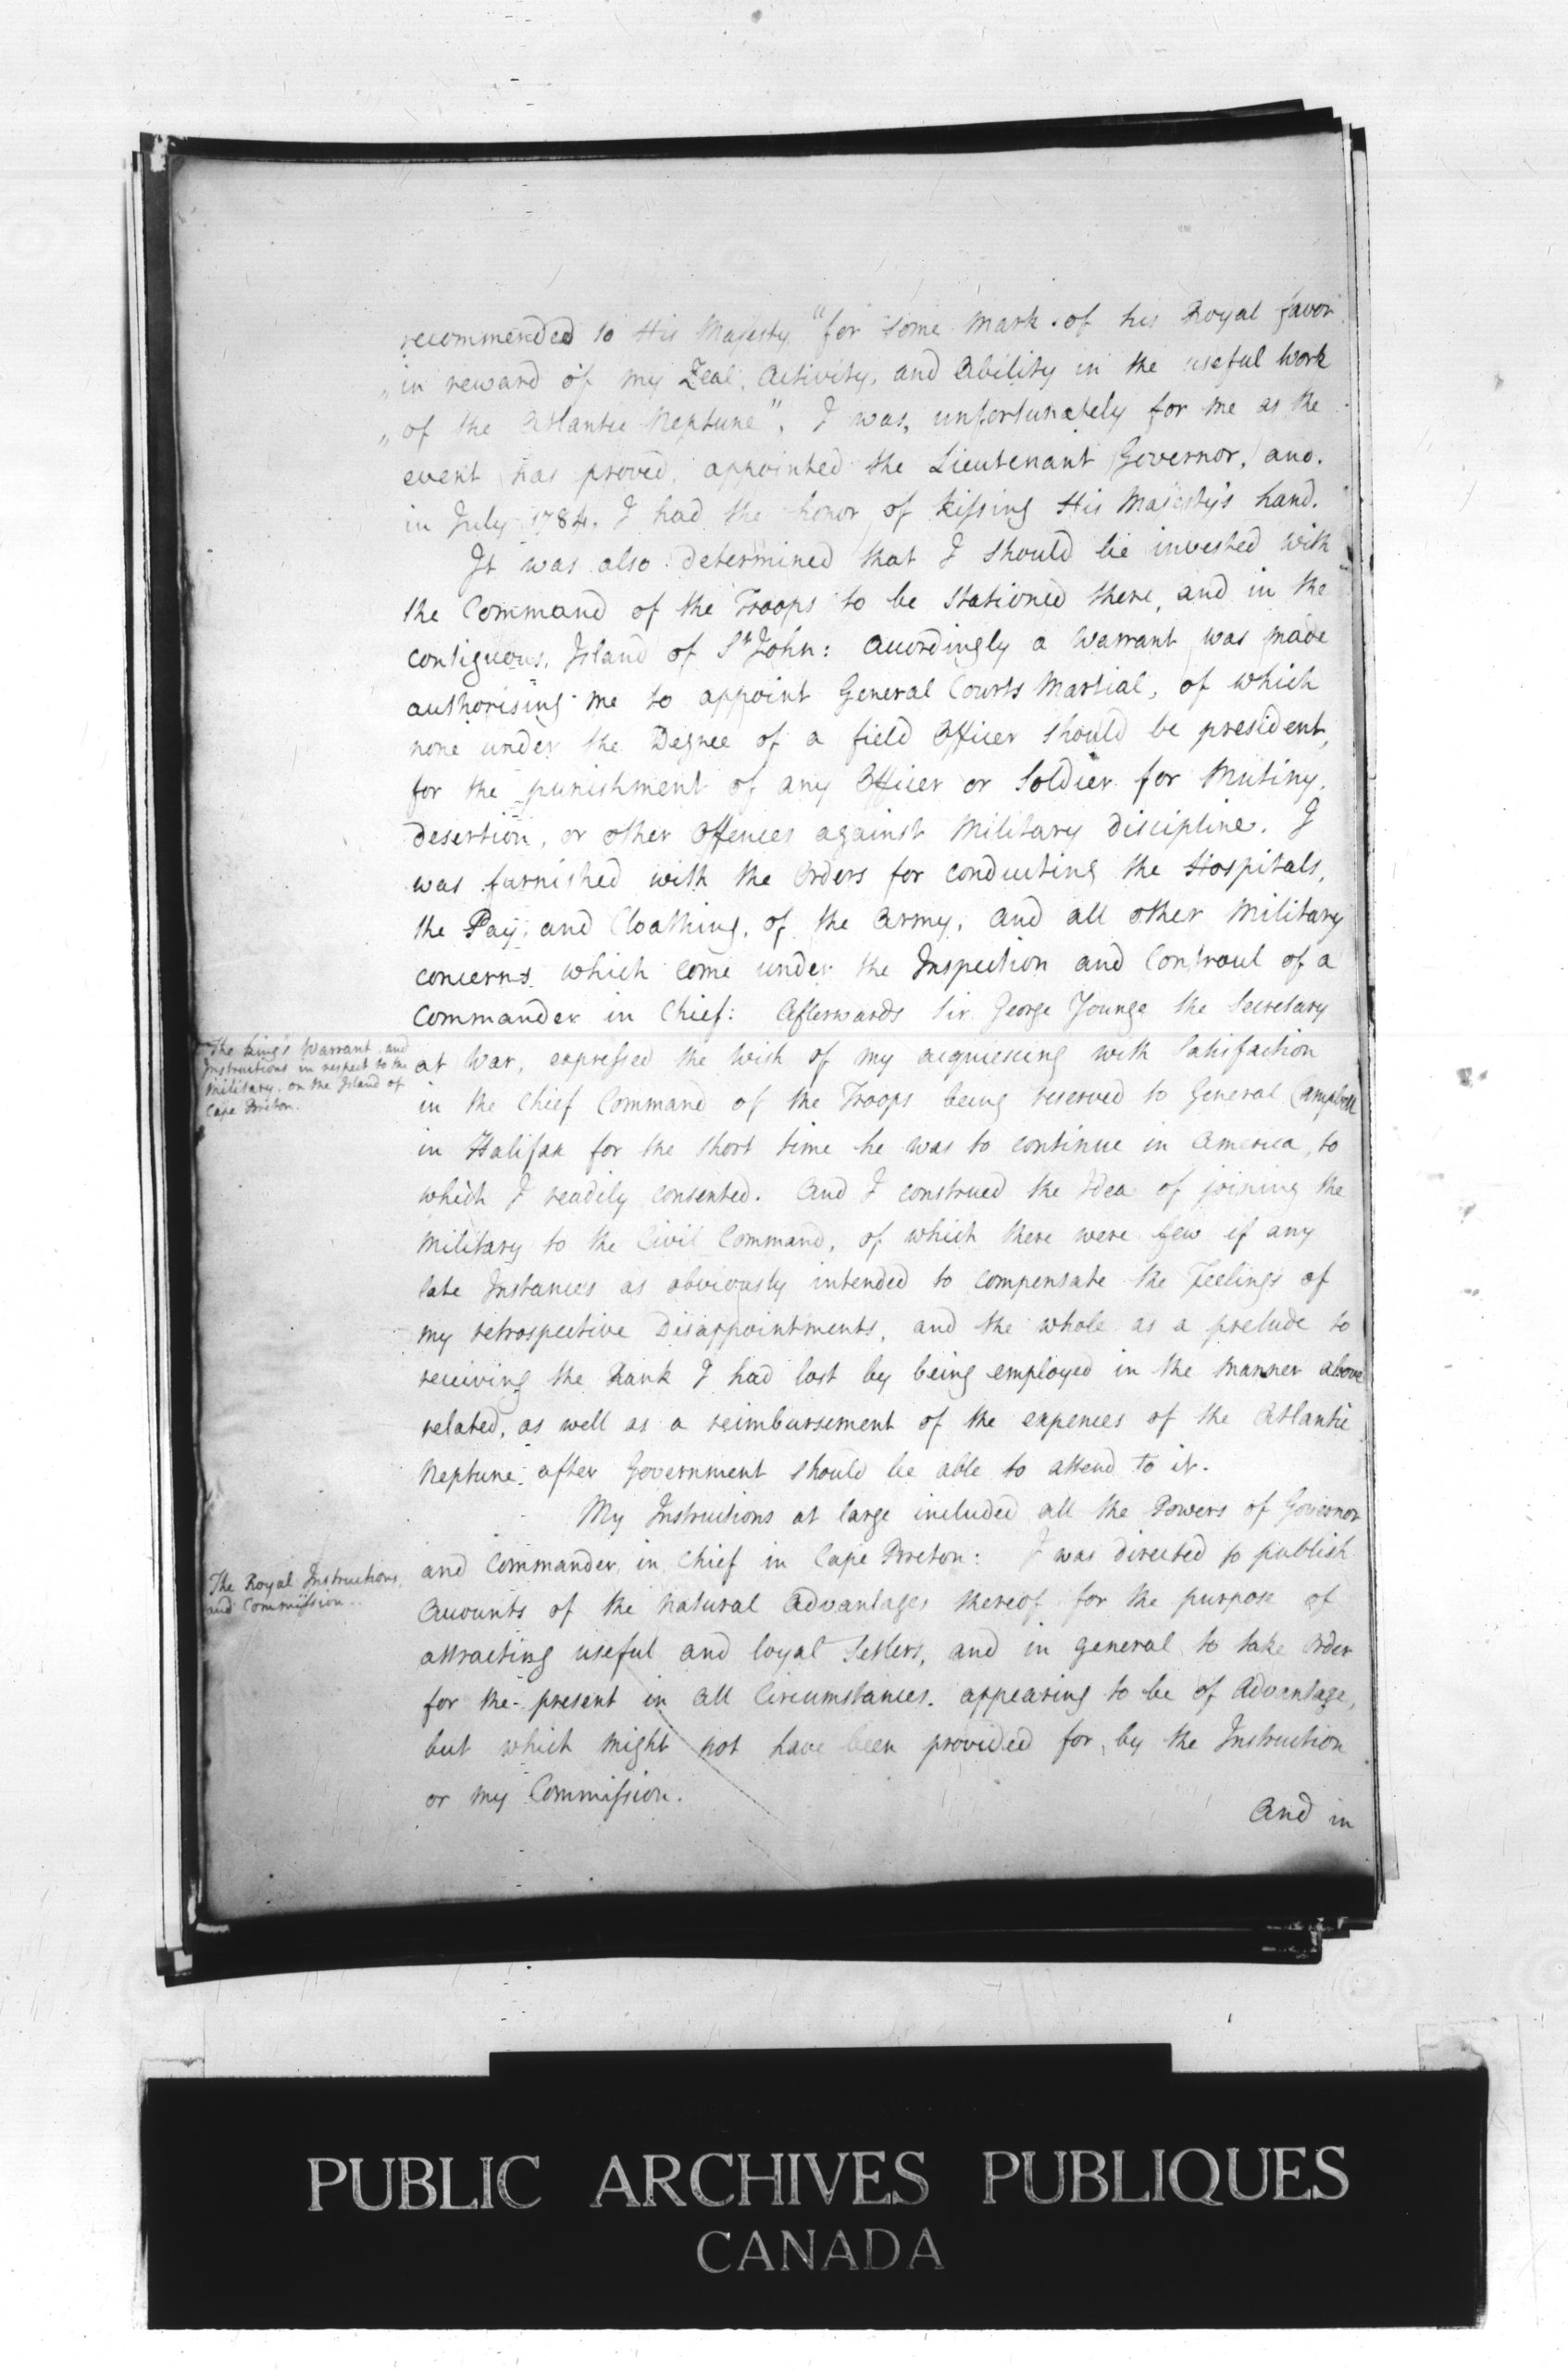 recommended to His Majesty "for some mark of his Royal favor
"in reward of my Zeal, Activity, and Ability in the useful work
"of the Atlantic Neptune". I was, unfortunately for me as the
event has proved, appointed the Lieutenant Governor, and
in July 1784. I had the honor of kissing His Majesty's hand.
It was also determined that I should be invested with
the Command of the Troops to be stationed there, and in the
contiguous Island of St John: Accordingly a Warrant was made
authorising me to appoint General Courts Martial, of which
none under the Degree of a field Officer should be president,
for the punishment of any Officer or Soldier for Mutiny,
desertion, or other Offences against Military discipline. I
was furnished with the Orders for conducting the Hospitals,
the Pay, and Cloathing, of the Army, and all other Military
concerns which come under the Inspection and Controul of a
Commander in Chief: Afterwards Sir George Younge the Secretary
The King's Warrant, and
Instructions in respect to the
Military, on the Island of
Cape Breton.
at War, expressed the wish of my acquiescing with Satisfaction
in the Chief Command of the Troops being reserved to General Campbell
in Halifax for the short time he was to continue in America, to
which I readily consented. And I construed the Idea of joining the
Military to the Civil Command, of which there were few if any
late Instances as obviously intended to compensate the Feelings of
my retrospective Disappointments, and the whole as a prelude to
receiving the Rank I had lost by being employed in the manner above
related, as well as a reimbursement of the expences of the Atlantic
Neptune after Government should be able to attend to it.
My Instructions at large included all the Powers of Governor
The Royal Instructions,
and Commission.
and Commander in Chief in Cape Breton: I was directed to publish
Accounts of the Natural Advantages thereof for the purpose of
attracting useful and loyal Setlers, and in general to take Order
for the present in all Circumstances appearing to be of Advantage,
but which might not have been provided for by the Instruction
or my Commission.
And in
PUBLIC ARCHIVES PUBLIQUES
CANADA